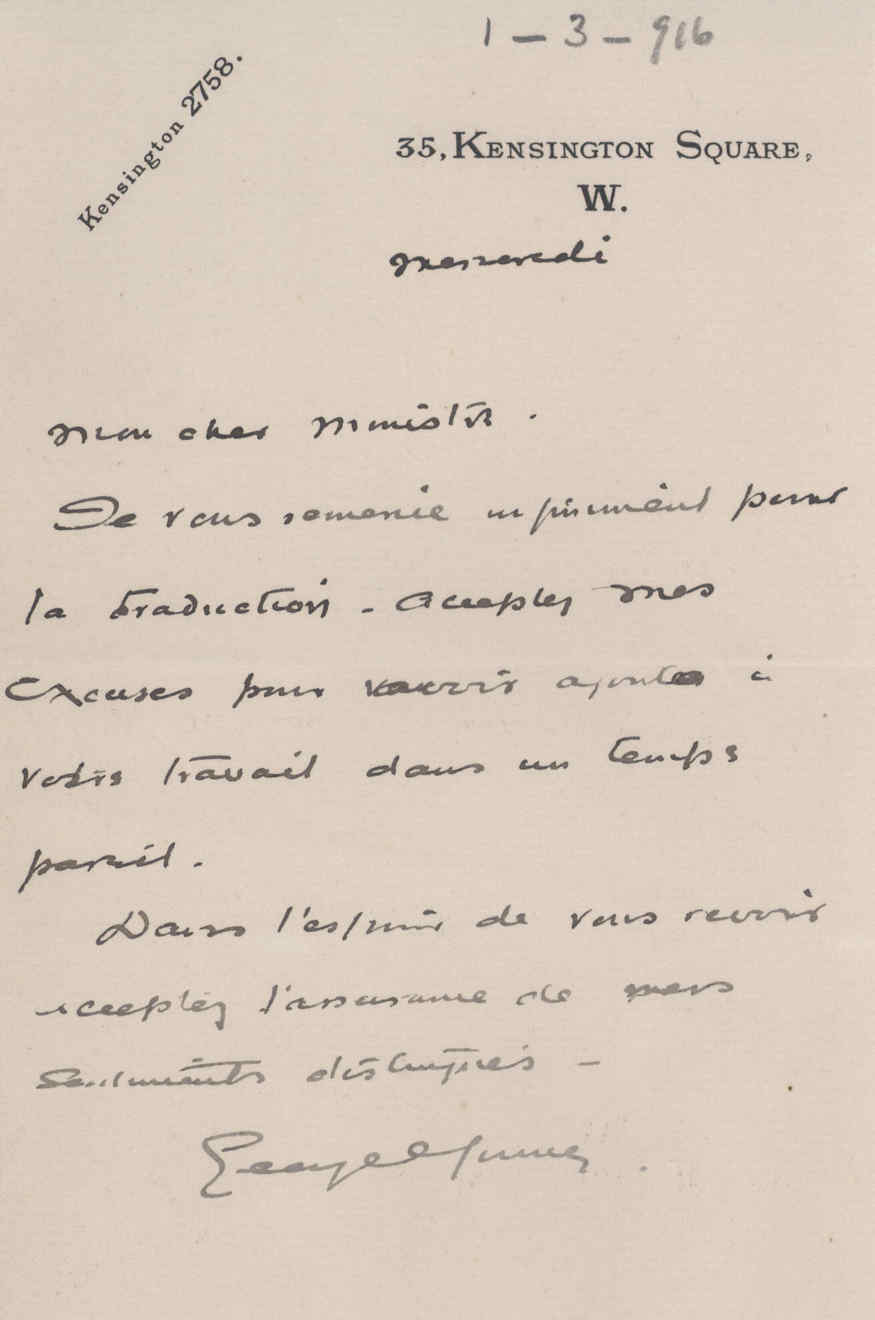 1 - 3 - 916
Kensington 2758.
35, KENSINGTON SQUARE,
W.
Mercredi
Mon cher Ministre.
Je vous remercie infiniment pour
la traduction. Acceptez mes
excuses pour avoir ajouté à
votre travail dans un temps
pareil.
Dans l'espoir de vous revoir
acceptez l'assurance de mes
sentiments distingués -
George